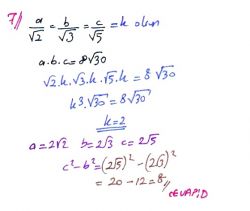 7// a/√2 = b/√3 = c/√5 = k olsun
a.b.c = 8√30
√2.k.√3.k.√5.k = 8√30
k³.√30 = 8√30
k=2
a=2√2 b=2√3 c=2√5
c²-b² = (2√5)² - (2√3)²
= 20-12=8//
CEVAP:D